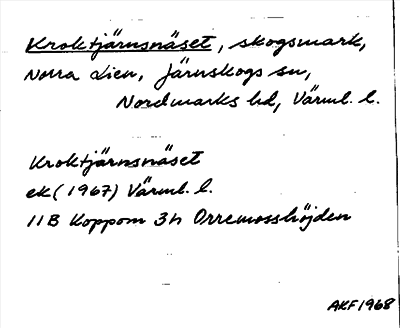 Kroktjärnsnäset, skogsmark,
Norra Lien, Järnskogs sn,
Nordmarks hd, Värml. l.
Kroktjärnsnäset
ek (1967) Värml. l.
11B Koppom 3h Orremosshöjden
AKF 1968